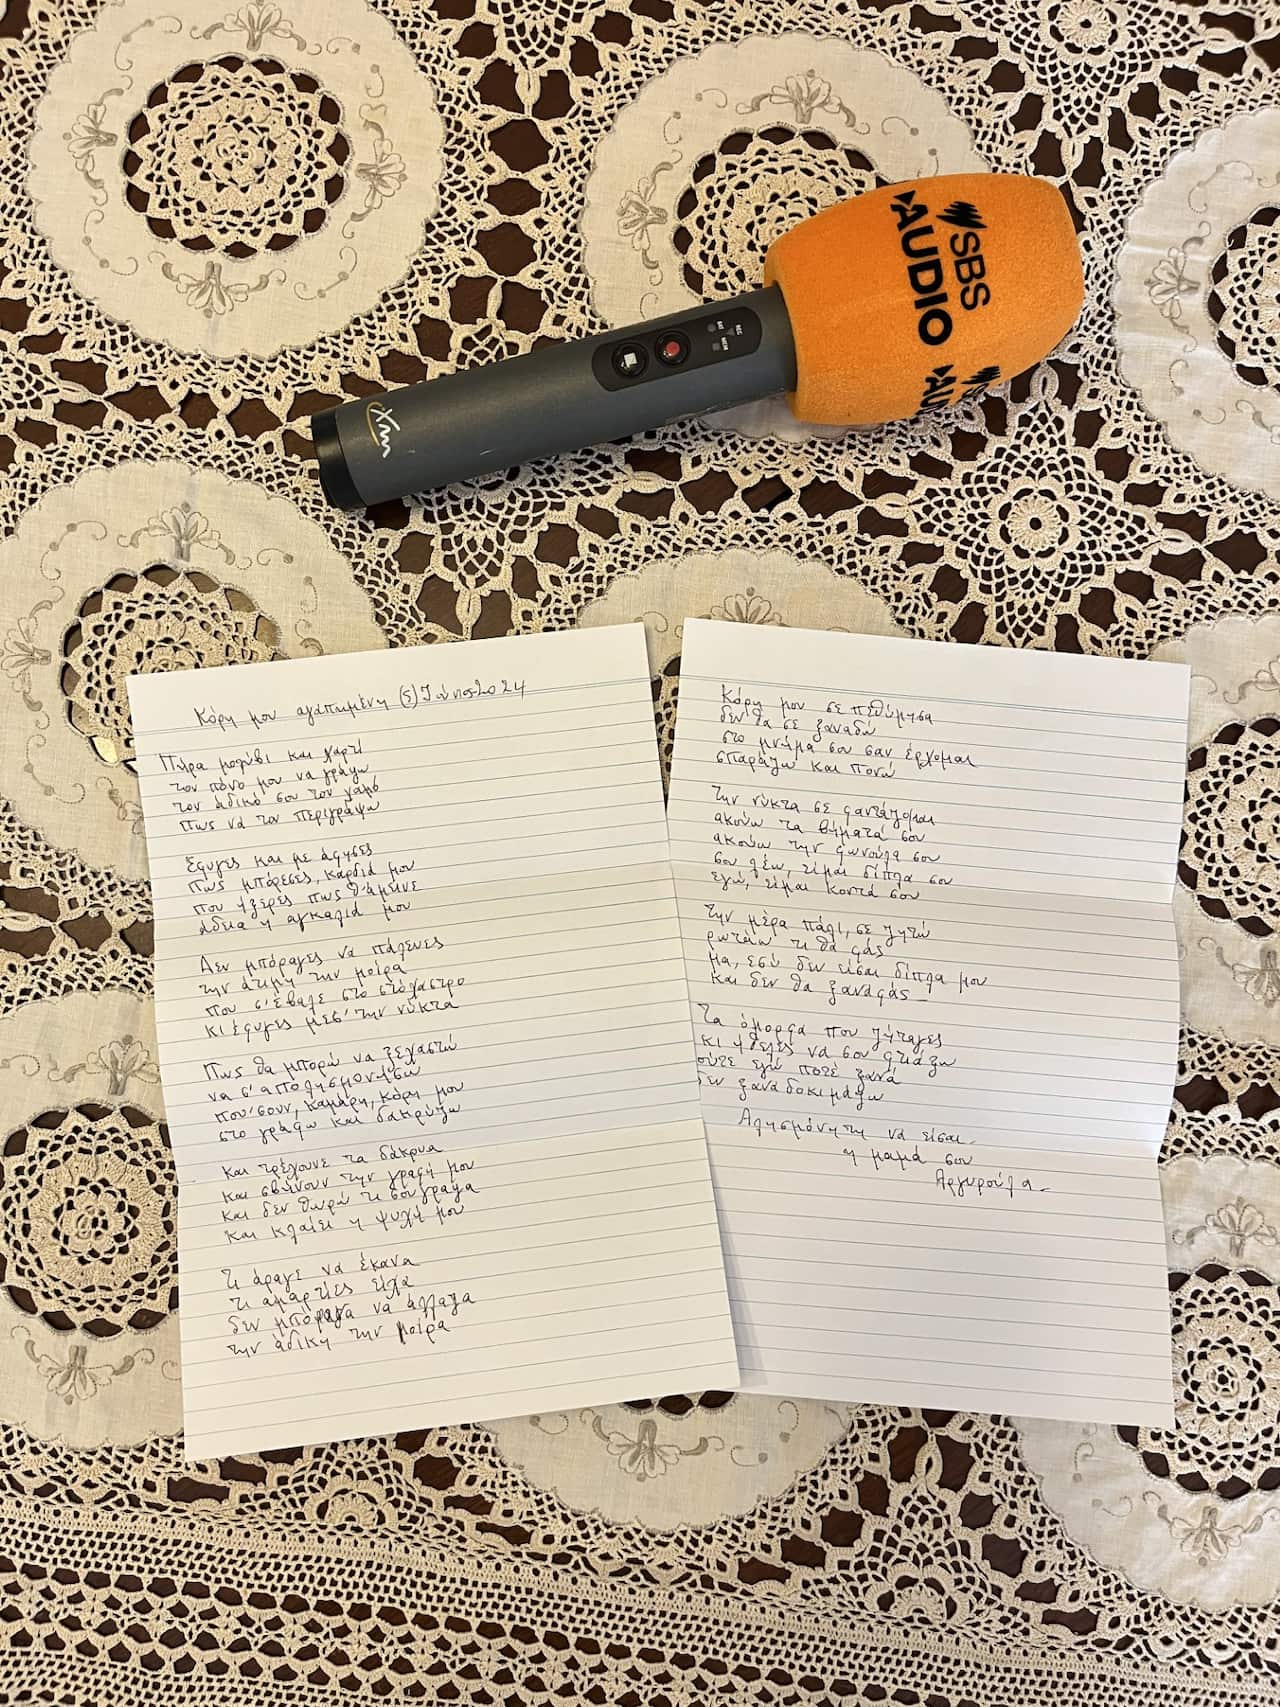 SBS
AUDIO
SBS
AUD
REC
BAT
MEM
Κόρη μου αγαπημένη (5) Ιούνιο 2024
Πήρα μολύβι και χαρτί
τον πόνο μου να γράψω
τον άδικό σου τον χαμό
πως να τον περιγράψω
Έφυγες και με άφησες
πως μπόρεσες, καρδιά μου
που ήξερες πως θ'άμεινε
άδεια η αγκαλιά μου
Δεν μπόραγες να πάλευες
την άτιμη την μοίρα
που σ'έβαλε στο στόχαστρο
κι έφυγες μεσ' την νύκτα
Πως θα μπορώ να ξεχαστώ
να σ'απολησμονήσω
που'σουν, καμάρι, κόρη μου
στο γράφω και δακρύζω
και τρέχουνε τα δάκρυα
και σβήνουν την γραφή μου
και δεν θωρώ τι σου γραψα
και κλαίει η ψυχή μου
τι άραγε να έκανα
τι αμαρτίες είχα
δεν μπόραγα να άλλαγα
την άδικη την μοίρα
Κόρη μου σε πεθύμησα
δεν θα σε ξαναδώ
στο μνήμα σου σαν έρχομαι
σπαράζω και πονώ
την νύκτα σε φαντάζομαι
ακούω τα βήματά σου
ακούω την φωνούλα σου
σου λέω, είμαι δίπλα σου
εγώ, είμαι κοντά σου
την μέρα πάλι, σε ζητώ
ρωτάω τι θα φάς
μα, εσύ δεν είσαι δίπλα μου
και δεν θα ξαναφάς
Τα όμορφα που ζήταγες
κι ήθελες να σου φτιάξω
ούτε εγώ ποτέ ξανά
δεν ξαναδοκιμάζω
Αλησμόνητη να είσαι
η μαμά σου
Αργυρούλα